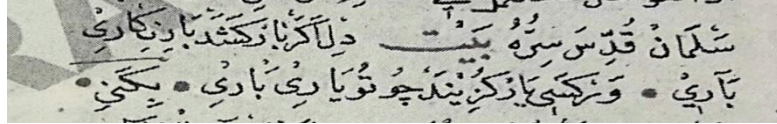 سَلْمَانْ قُدِّسَ سِرُّهُ بَيْتْ دِلْ اَكَرْ بَارْ كَشَدْ بَارِ نِكَارِيْ
بَارِيْ • وَرْ كَسِي يَارْ كُزِينَدْ چُو تُو يَارِيْ بَارِيْ • يِكَنِي •